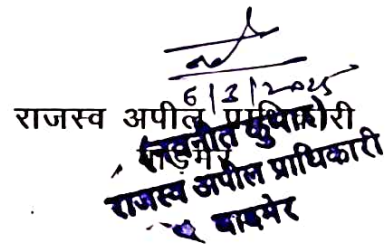 6/3/2025
राजस्व अपील प्राधिकारी
बाड़मेर
(नवनीत कुमार)
राजस्व अपील प्राधिकारी
बाडमेर